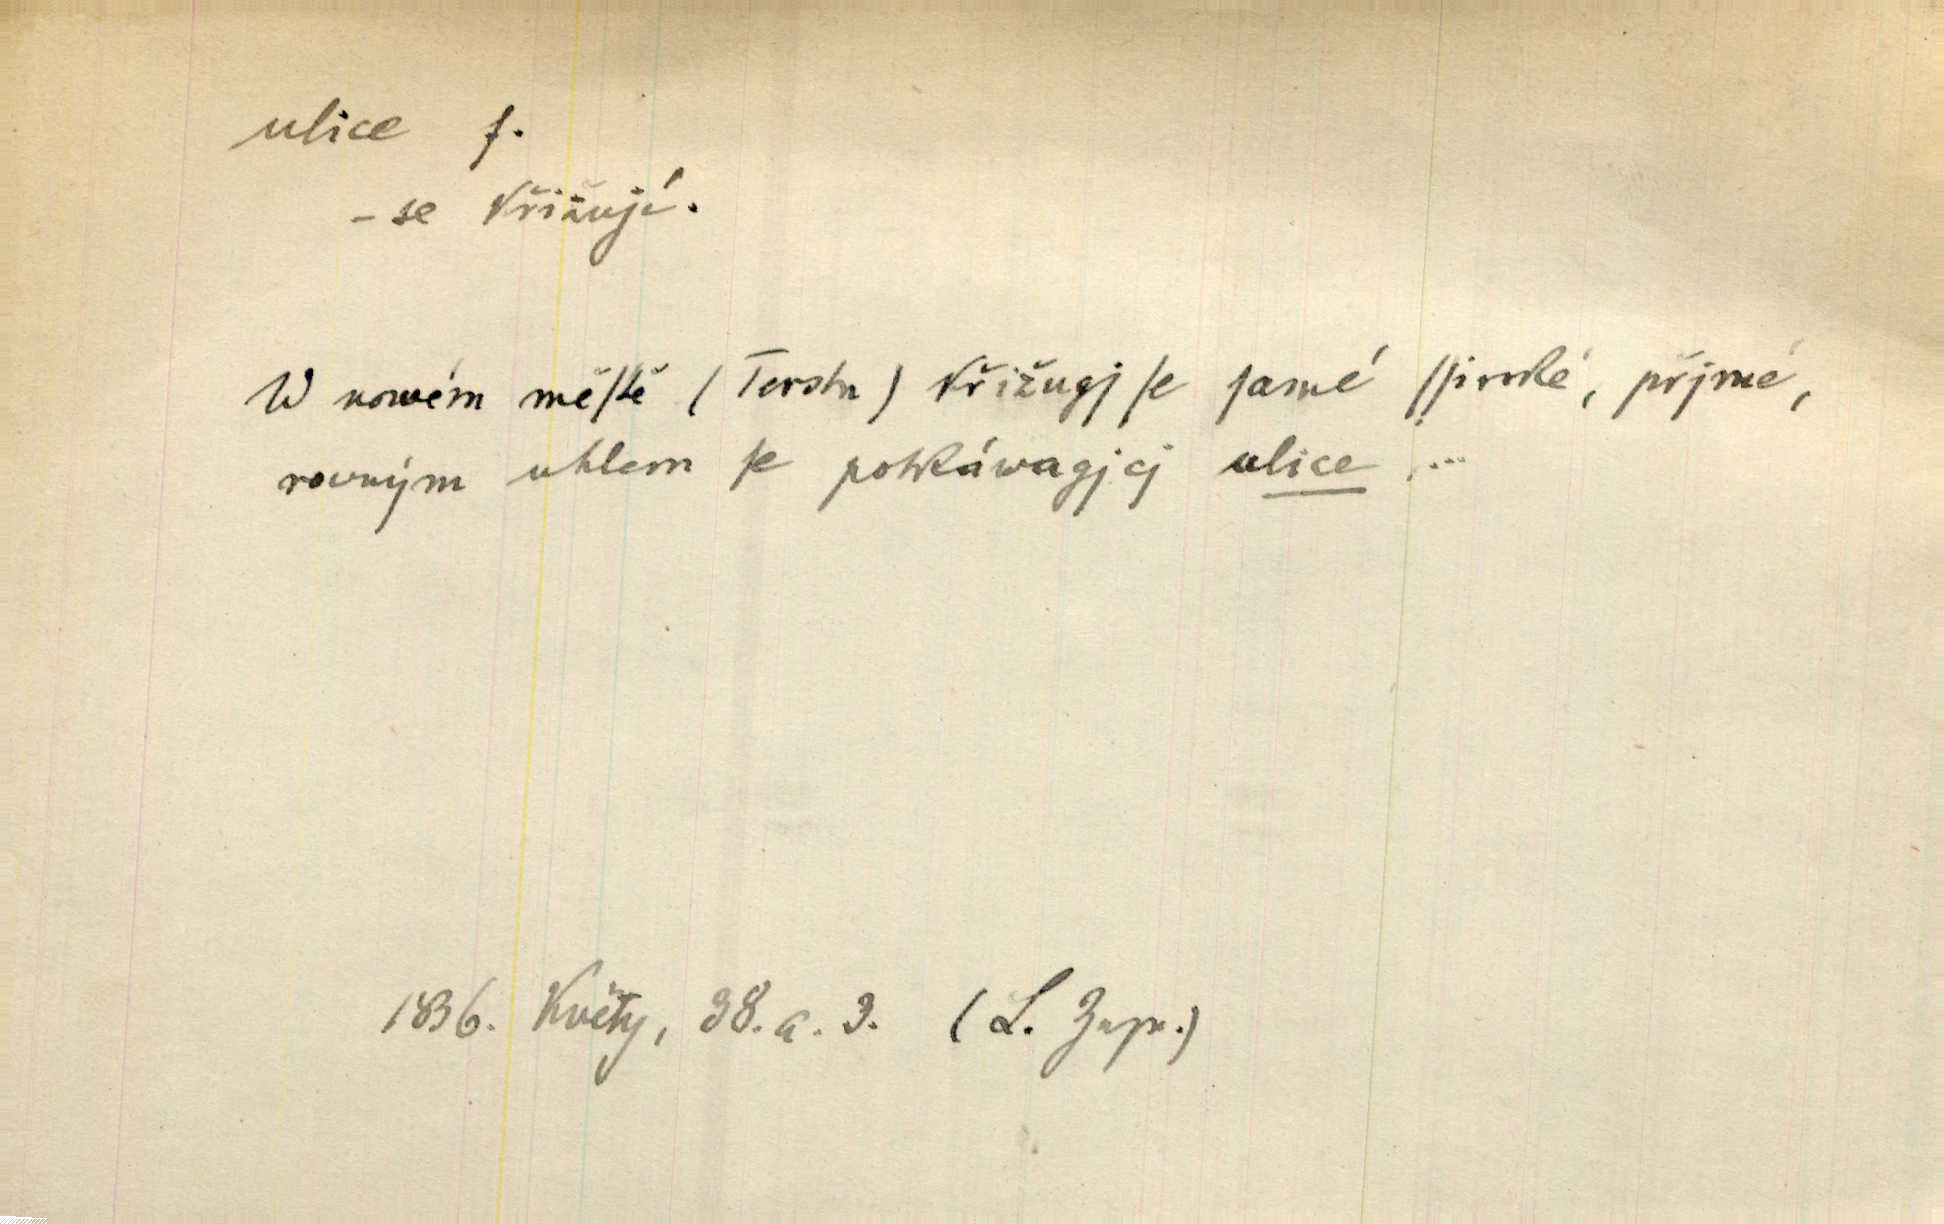 ulice f.
– se křižují.
W nowém měſtě (Terstu) křižugj ſe ſamé ſſiroké, přjmé,
rovným uhlem ſe potkáwagjcj ulice ...
1836. Květy, 38. a. 3. (L. Zap.)